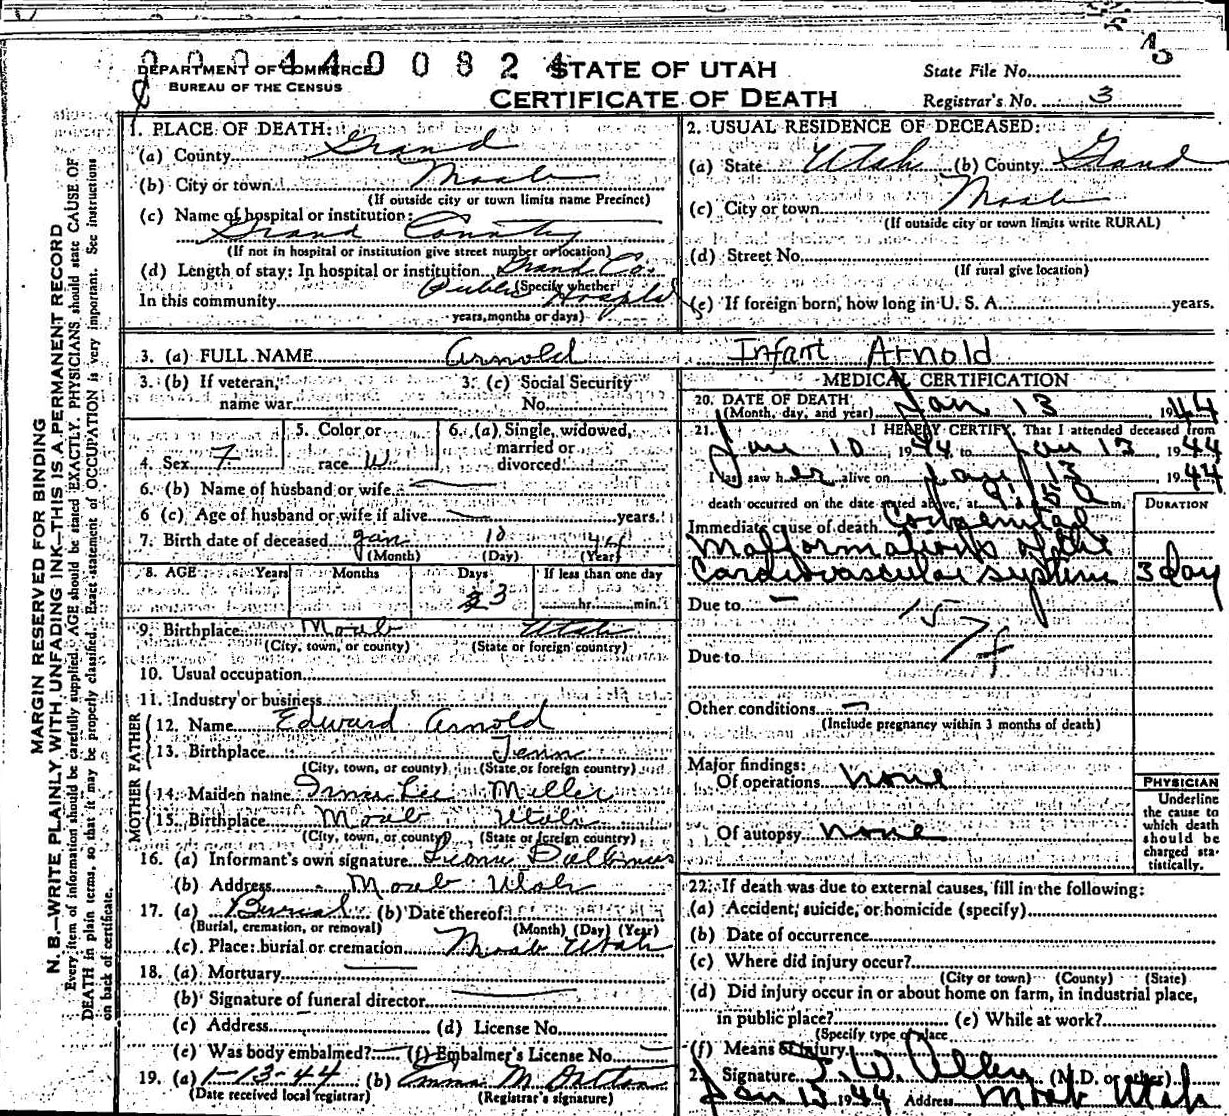 0001400824
DEPARTMENT OF COMMERCE
BUREAU OF THE CENSUS
STATE OF UTAH
CERTIFICATE OF DEATH
State File No.
Registrar's No. 3
MARGIN RESERVED FOR BINDING
N. B.—WRITE PLAINLY, WITH UNFADING INK—THIS IS A PERMANENT RECORD
Every item of information should be carefully supplied. AGE should be stated EXACTLY. PHYSICIANS should state CAUSE OF
DEATH in plain terms, so that it may be properly classified. Exact statement of OCCUPATION is very important. See instructions
on back of certificate.
1. PLACE OF DEATH:
(a) County Grand
(b) City or town Moab
(If outside city or town limits name Precinct)
(c) Name of hospital or institution:
Grand County
(If not in hospital or institution give street number or location)
(d) Length of stay: In hospital or institution Grand Co.
Public Hospital
(Specify whether
In this community
years, months or days)
2. USUAL RESIDENCE OF DECEASED:
(a) State Utah (b) County Grand
(c) City or town Moab
(If outside city or town limits write RURAL)
(d) Street No.
(If rural give location)
(e) If foreign born, how long in U. S. A. years.
3. (a) FULL NAME Arnold Infant Arnold
3. (b) If veteran,
name war
3. (c) Social Security
No.
4. Sex F
5. Color or
race W
6. (a) Single, widowed,
married or
divorced
6. (b) Name of husband or wife
6 (c) Age of husband or wife if alive years.
7. Birth date of deceased Jan 10 44
(Month) (Day) (Year)
8. AGE Years Months Days If less than one day
3 hr. min.
9. Birthplace Moab Utah
(City, town, or county) (State or foreign country)
10. Usual occupation
11. Industry or business
FATHER
12. Name Edward Arnold
13. Birthplace Tenn
(City, town, or county) (State or foreign country)
MOTHER
14. Maiden name Irma Lee Miller
15. Birthplace Moab Utah
(City, town, or county) (State or foreign country)
16. (a) Informant's own signature
(b) Address Moab Utah
17. (a) Burial (b) Date thereof
(Burial, cremation, or removal) (Month) (Day) (Year)
(c) Place: burial or cremation Moab Utah
18. (a) Mortuary
(b) Signature of funeral director
(c) Address (d) License No.
(e) Was body embalmed? (f) Embalmer's License No.
19. (a) 1-13-44 (b) Emma M
(Date received local registrar) (Registrar's signature)
MEDICAL CERTIFICATION
20. DATE OF DEATH
(Month, day, and year) Jan 13, 1944
21. I HEREBY CERTIFY, That I attended deceased from
Jan 10, 1944 to Jan 13, 1944
I last saw her alive on Jan 13, 1944
death occurred on the date stated above, at m.
DURATION
Immediate cause of death Congenital
Malformations of the
Cardiovascular system 3 day
Due to
Due to
Other conditions
(Include pregnancy within 3 months of death)
Major findings:
Of operations none
Of autopsy none
PHYSICIAN
Underline
the cause to
which death
should be
charged sta-
tistically.
22. If death was due to external causes, fill in the following:
(a) Accident, suicide, or homicide (specify)
(b) Date of occurrence
(c) Where did injury occur?
(City or town) (County) (State)
(d) Did injury occur in or about home on farm, in industrial place,
in public place? (e) While at work?
(Specify type of place
(f) Means of Injury
23. Signature J. W. Allen (M.D. or other)
Jan 15 1944 Address Moab Utah